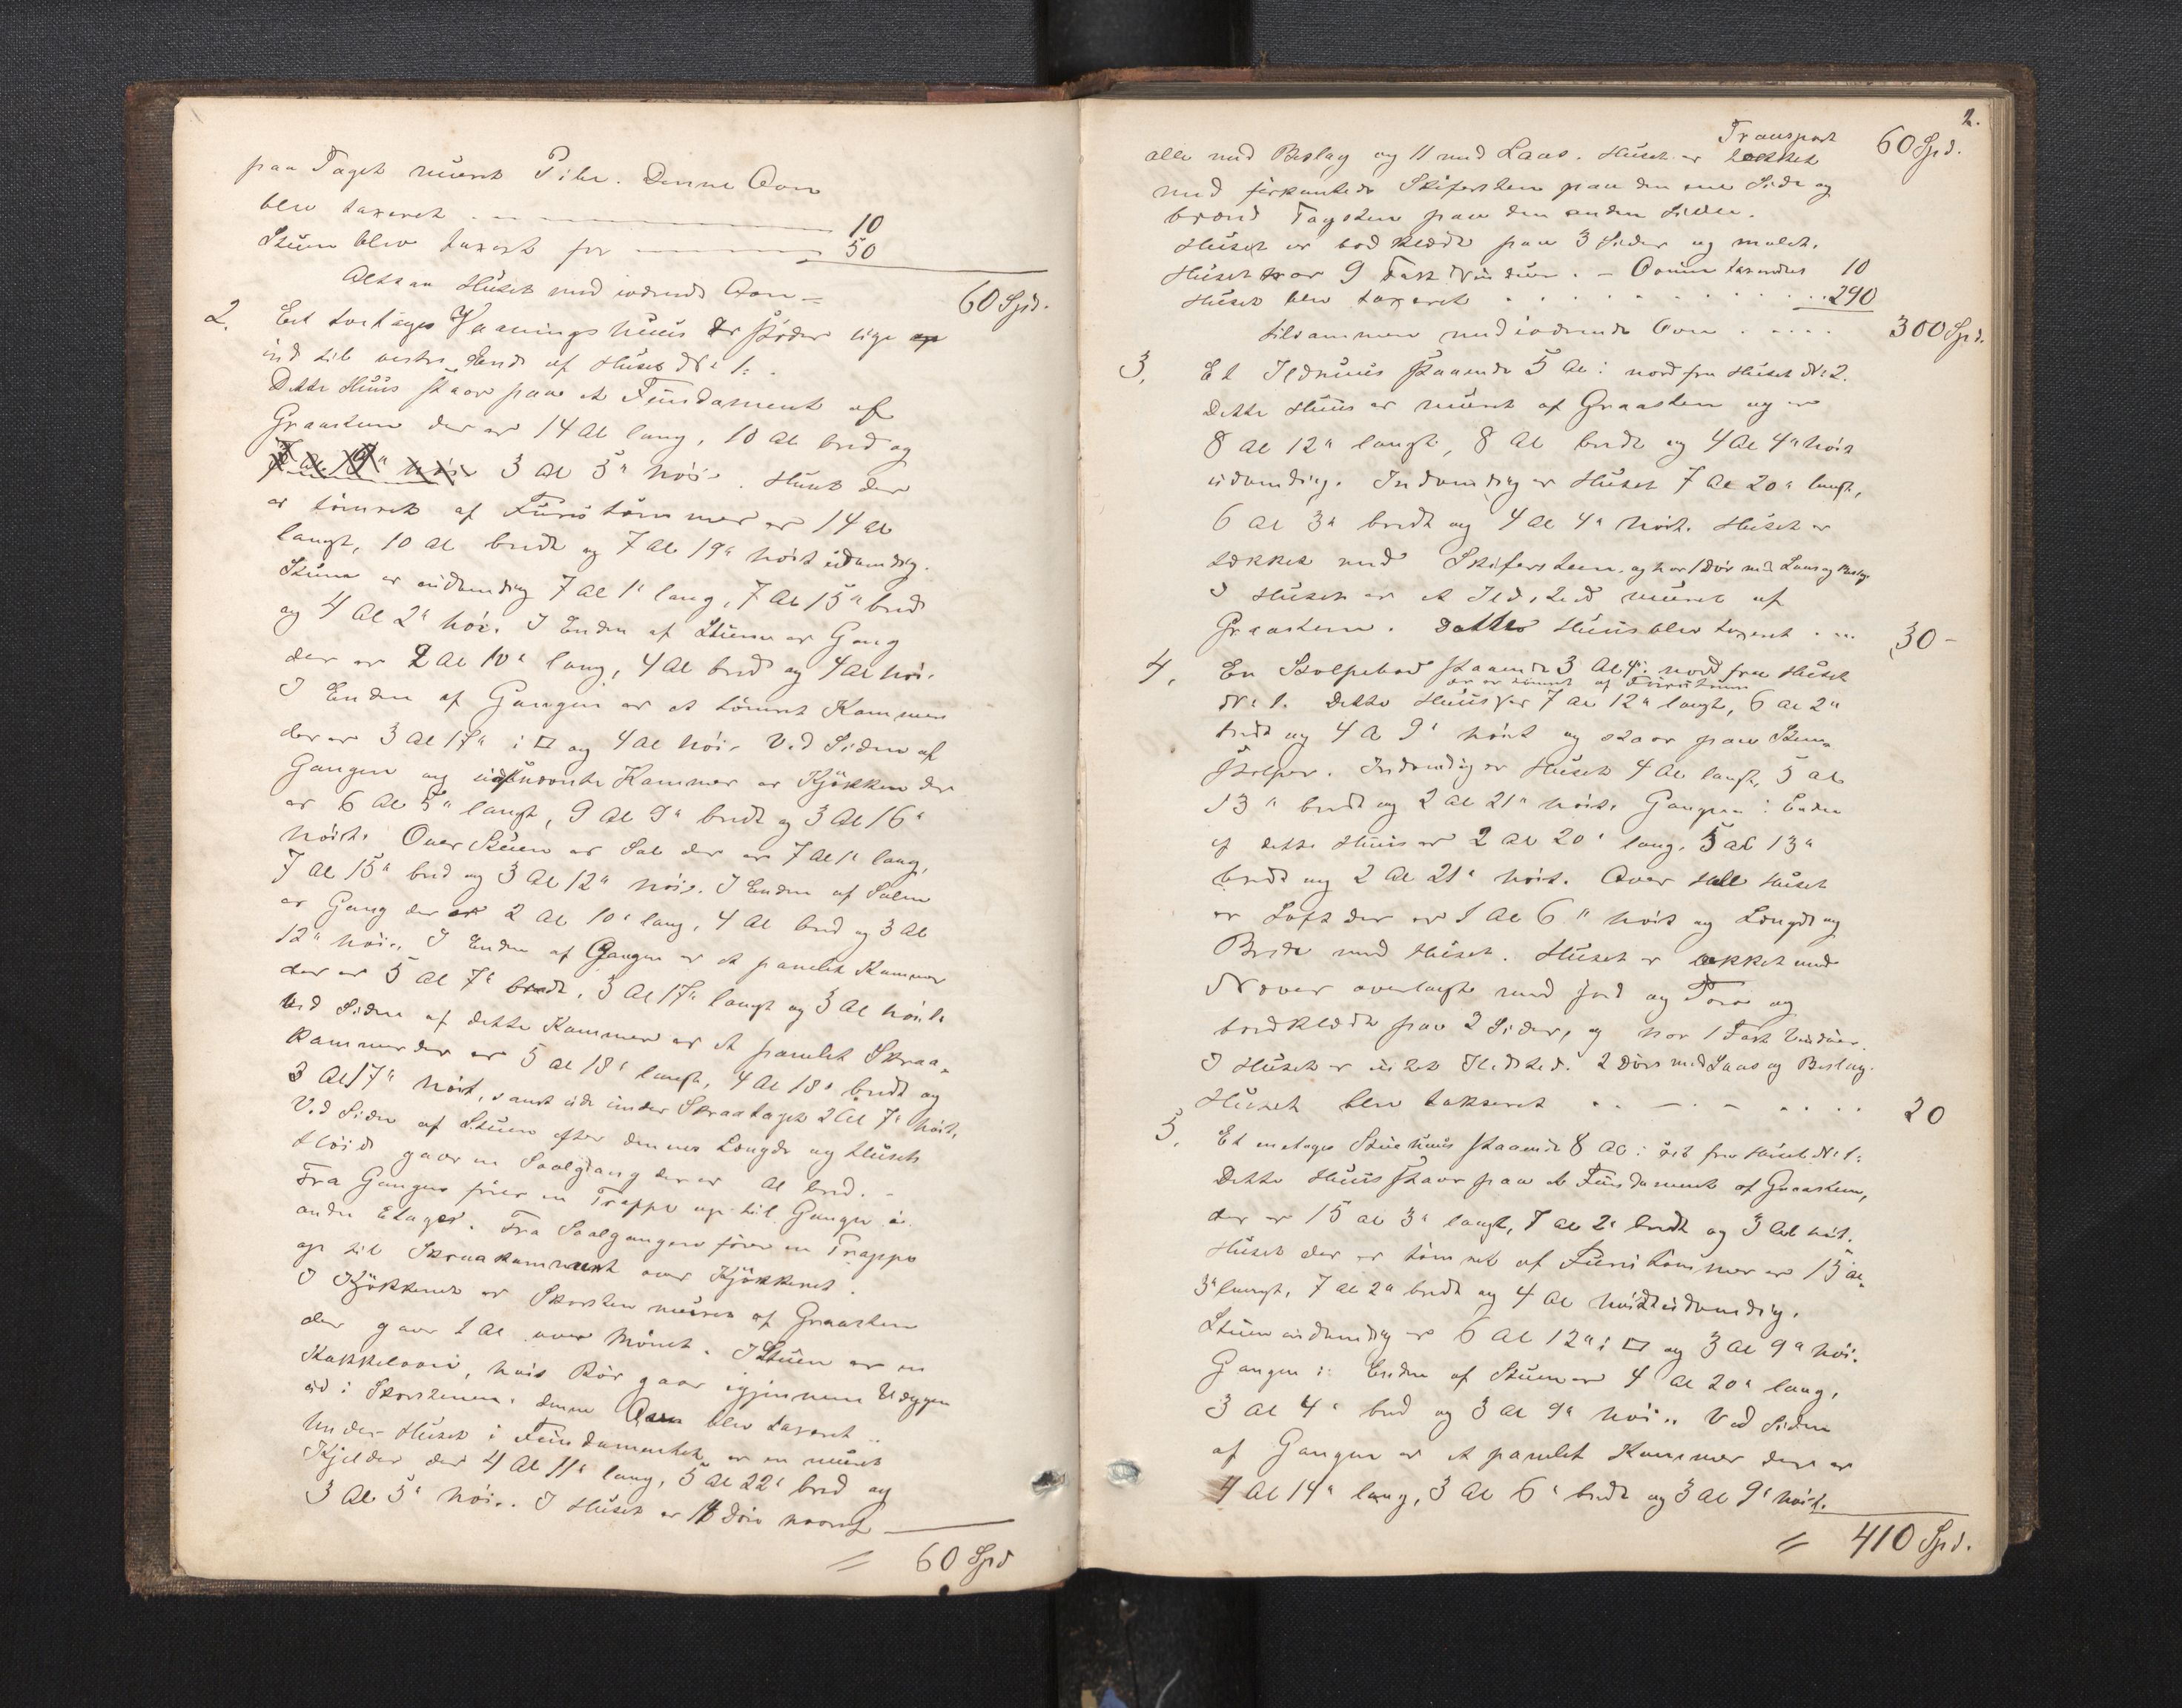 paa Taget muret Pibe. Denne Oon
blev taxeret 10
Stuen blev taxert for 50
Altsaa Huset med iværende Oon = 60 Spd.
2. Eet toetages Vaaningshuus der støder lige op
ind til vestre Ende af Huset No 1.
Dette Huus staar paa et Fundament af
Graasteen der er 14 Al lang, 10 Al bred og
3 Al 5" høi. Huset der
er tømret af Furutømmer er 14 Al
langt, 10 Al bredt og 7 Al 19" høit udvendig.
Stuen er indvendig 7 Al 1" lang, 7 Al 15" bred
og 4 Al 2" høi. I Enden af Stuen er Gang
der er 2 Al 10" lang, 4 Al bred og 4 Al høi.
I Enden af Gangen er et tømret Kammer
der er 3 Al 17" i □ og 4 Al høi. Ved Siden af
Gangen og Kammer er Kjøkken der
er 6 Al 5" langt, 9 Al 9" bredt og 3 Al 16"
høit. Over Stuen er Sal der er 7 Al 1" lang,
7 Al 15" bred og 3 Al 12" høi. I Enden af Salen
er Gang der er 2 Al 10" lang, 4 Al bred og 3 Al
12" høi. I Enden af Gangen er et panelet Kammer
der er 5 Al 7" bredt, 3 Al 17" langt og 3 Al høit.
Ved Siden af dette Kammer er et panelet Skraa-
kammer der er 5 Al 18" langt, 4 Al 18" bredt og
3 Al 17" høit, samt ude under Skraataget 2 Al 7" høit.
Ved Siden af Stuen efter dennes Længde og Husets
Høide gaar en Svalgang der er Al bred. -
Fra Gangen fører en Trappe op til Gangen i
anden Etage. Fra Svalgangen fører en Trappe
op til Skraakammeret over Kjøkkenet.
I Kjøkkenet er Skorsten muret af Graasteen
der gaar 1 Al over Mønet. I Stuen er en
Kakkelovn, hvis Rør gaar igjennem Væggen
ud i Skorstenen. denne Oon blev taxeret ..
Under Huset i Fundamentet er en muret
Kjelder der 4 Al 11" lang, 5 Al 22" bred og
3 Al 5" høi. I Huset er 14 Døre hvoraf
= 60 Spd
2.
Transport 60 Spd.
alle med Beslag og 11 med Laas. Huset er tækket
med firkantede Skifersteen paa den ene Side og
brændt Tagsten paa den anden Side.
Huset er bordklædt paa 3 Sider og malet.
Huset har 9 Fask Vinduer. - Oonen taxeredes 10
Huset blev taxeret 290
tilsammen med iværende Oon 300 Spd.
3. Et Ildhuus staaende 5 Al: nord fra Huset No 2.
Dette Huus er muret af Graasten og er
8 Al 12" langt, 8 Al bredt og 4 Al 4" høit
udvendig. Indvendig er Huset 7 Al 20" langt,
6 Al 3" bredt og 4 Al 4" høit. Huset er
tækket med Skifersteen. og har 1 Dør med Laas og Beslag
I Huset er et Ildsted muret af
Graasteen. Dette Huus blev taxeret 30 -
4. En Stolpebod staaende 3 Al 4" nord fra Huset
der er tømret af Furutømmer
No 1. Dette Huus er 7 Al 12" langt, 6 Al 2"
bredt og 4 Al 9" høit og staar paa Steen-
stolper. Indvendig er Huset 4 Al langt, 5 Al
13" bredt og 2 Al 21" høit. Gangen i Enden
af dette Huus er 2 Al 20" lang, 5 Al 13"
bredt og 2 Al 21" høit. Over Huset
er Loft der er 1 Al 6" høit og Længde og
Brede med Huset. Huset er tækket med
Næver overlagt med Jord og Torv og
bordklædt paa 2 Sider, og har 1 Fask Vinduer.
I Huset er intet Ildsted. 2 Døre med Laas og Beslag.
Huset blev takseret 20
5. Et enetages Stuehuus staaende 8 Al: øst fra Huset No 1:
Dette Huus staar paa et Fundament af Graasteen,
der er 15 Al 3" langt, 7 Al 2" bredt og 3 Al høit.
Huset der er tømret af Furutømmer er 15 Al
3" langt, 7 Al 2" bredt og 4 Al høidt udvendig.
Stuen indvendig er 6 Al 12" i □ og 3 Al 9" høi.
Gangen i Enden af Stuen er 4 Al 20" lang,
3 Al 4" bred og 3 Al 9" høi. Ved Siden
af Gangen er et panelet Kammer der er
4 Al 14" lang, 3 Al 6" bredt og 3 Al 9" høit.
= 410 Spd.